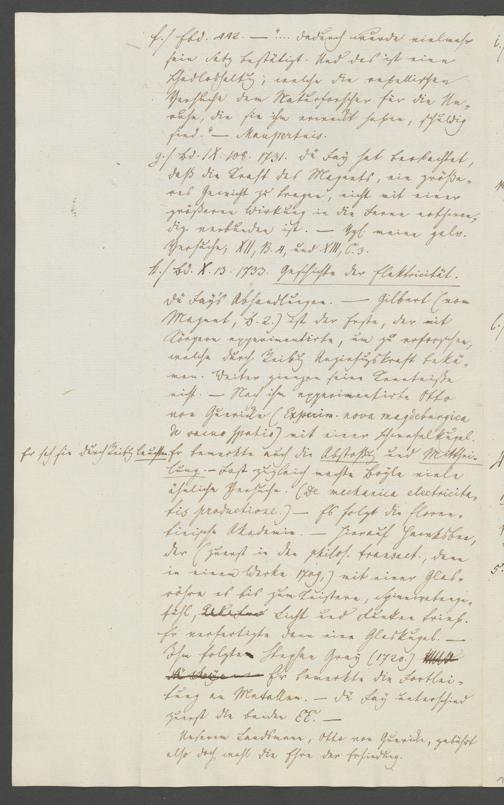 f.) Ebd. 442. — "... dadurch wurde vielmehr
sein Satz bestätigt. Und das ist eine
Schadloshaltg; welche die rebellischen
Versuche dem Naturforscher für die Un-
ruhe, die sie ihm erweckt haben, schuldig
sind." — Maupertuis.
g.) Bd. IX. 108. 1731. Dü Fay hat beobachtet,
daß die Kraft des Magnets, ein größe-
res Gewicht zu tragen, nicht mit einer
größeren Wirkung in die Ferne nothwen-
dig verbunden ist. — Vgl. meine galv.
Versuche, XII, B. 4, und XIII, C. 3.
h.) Bd. X. 13. 1733. Geschichte der Elektricität.
Dü Fay's Abhandlungen. — Gilbert (vom
Magnet, B. 2.) ist der Erste, der mit
Körpern experimentirte, um zu erforschen,
welche durch Reibg Anziehungskraft bekä-
men. Weiter giengen seine Kenntniße
nicht. — Nach ihm experimentirte Otto
von Guericke (Experim. nova magdeburgica
de vacuo spatio) mit einer Schwefelkugel.
Er sah sie durch Reibg leuchten
Er bemerkte auch die Abstoßg und Mitthei-
lung. — Fast zugleich machte Boyle viele
ähnliche Versuche. (De mechanica electricita-
tis productione.) — Es folgt die floren-
tinische Akademie. — Hierauf Hawksbee,
der (zuerst in den philos. transact., dann
in einem Werke 1709,) mit einer Glas-
röhre es bis zum Knistern,
fühl, Licht und Funken brachte.
Er verfertigte dann eine Glaskugel. —
Ihm folgte Stephan Gray (1720.)
Er bemerkte die Fortlei-
tung an Metallen. — Dü Fay unterschied
zuerst die beiden EE. —
Unserem Landsmann, Otto von Guericke, gebührt
also doch wohl die Ehre der Erfindung.